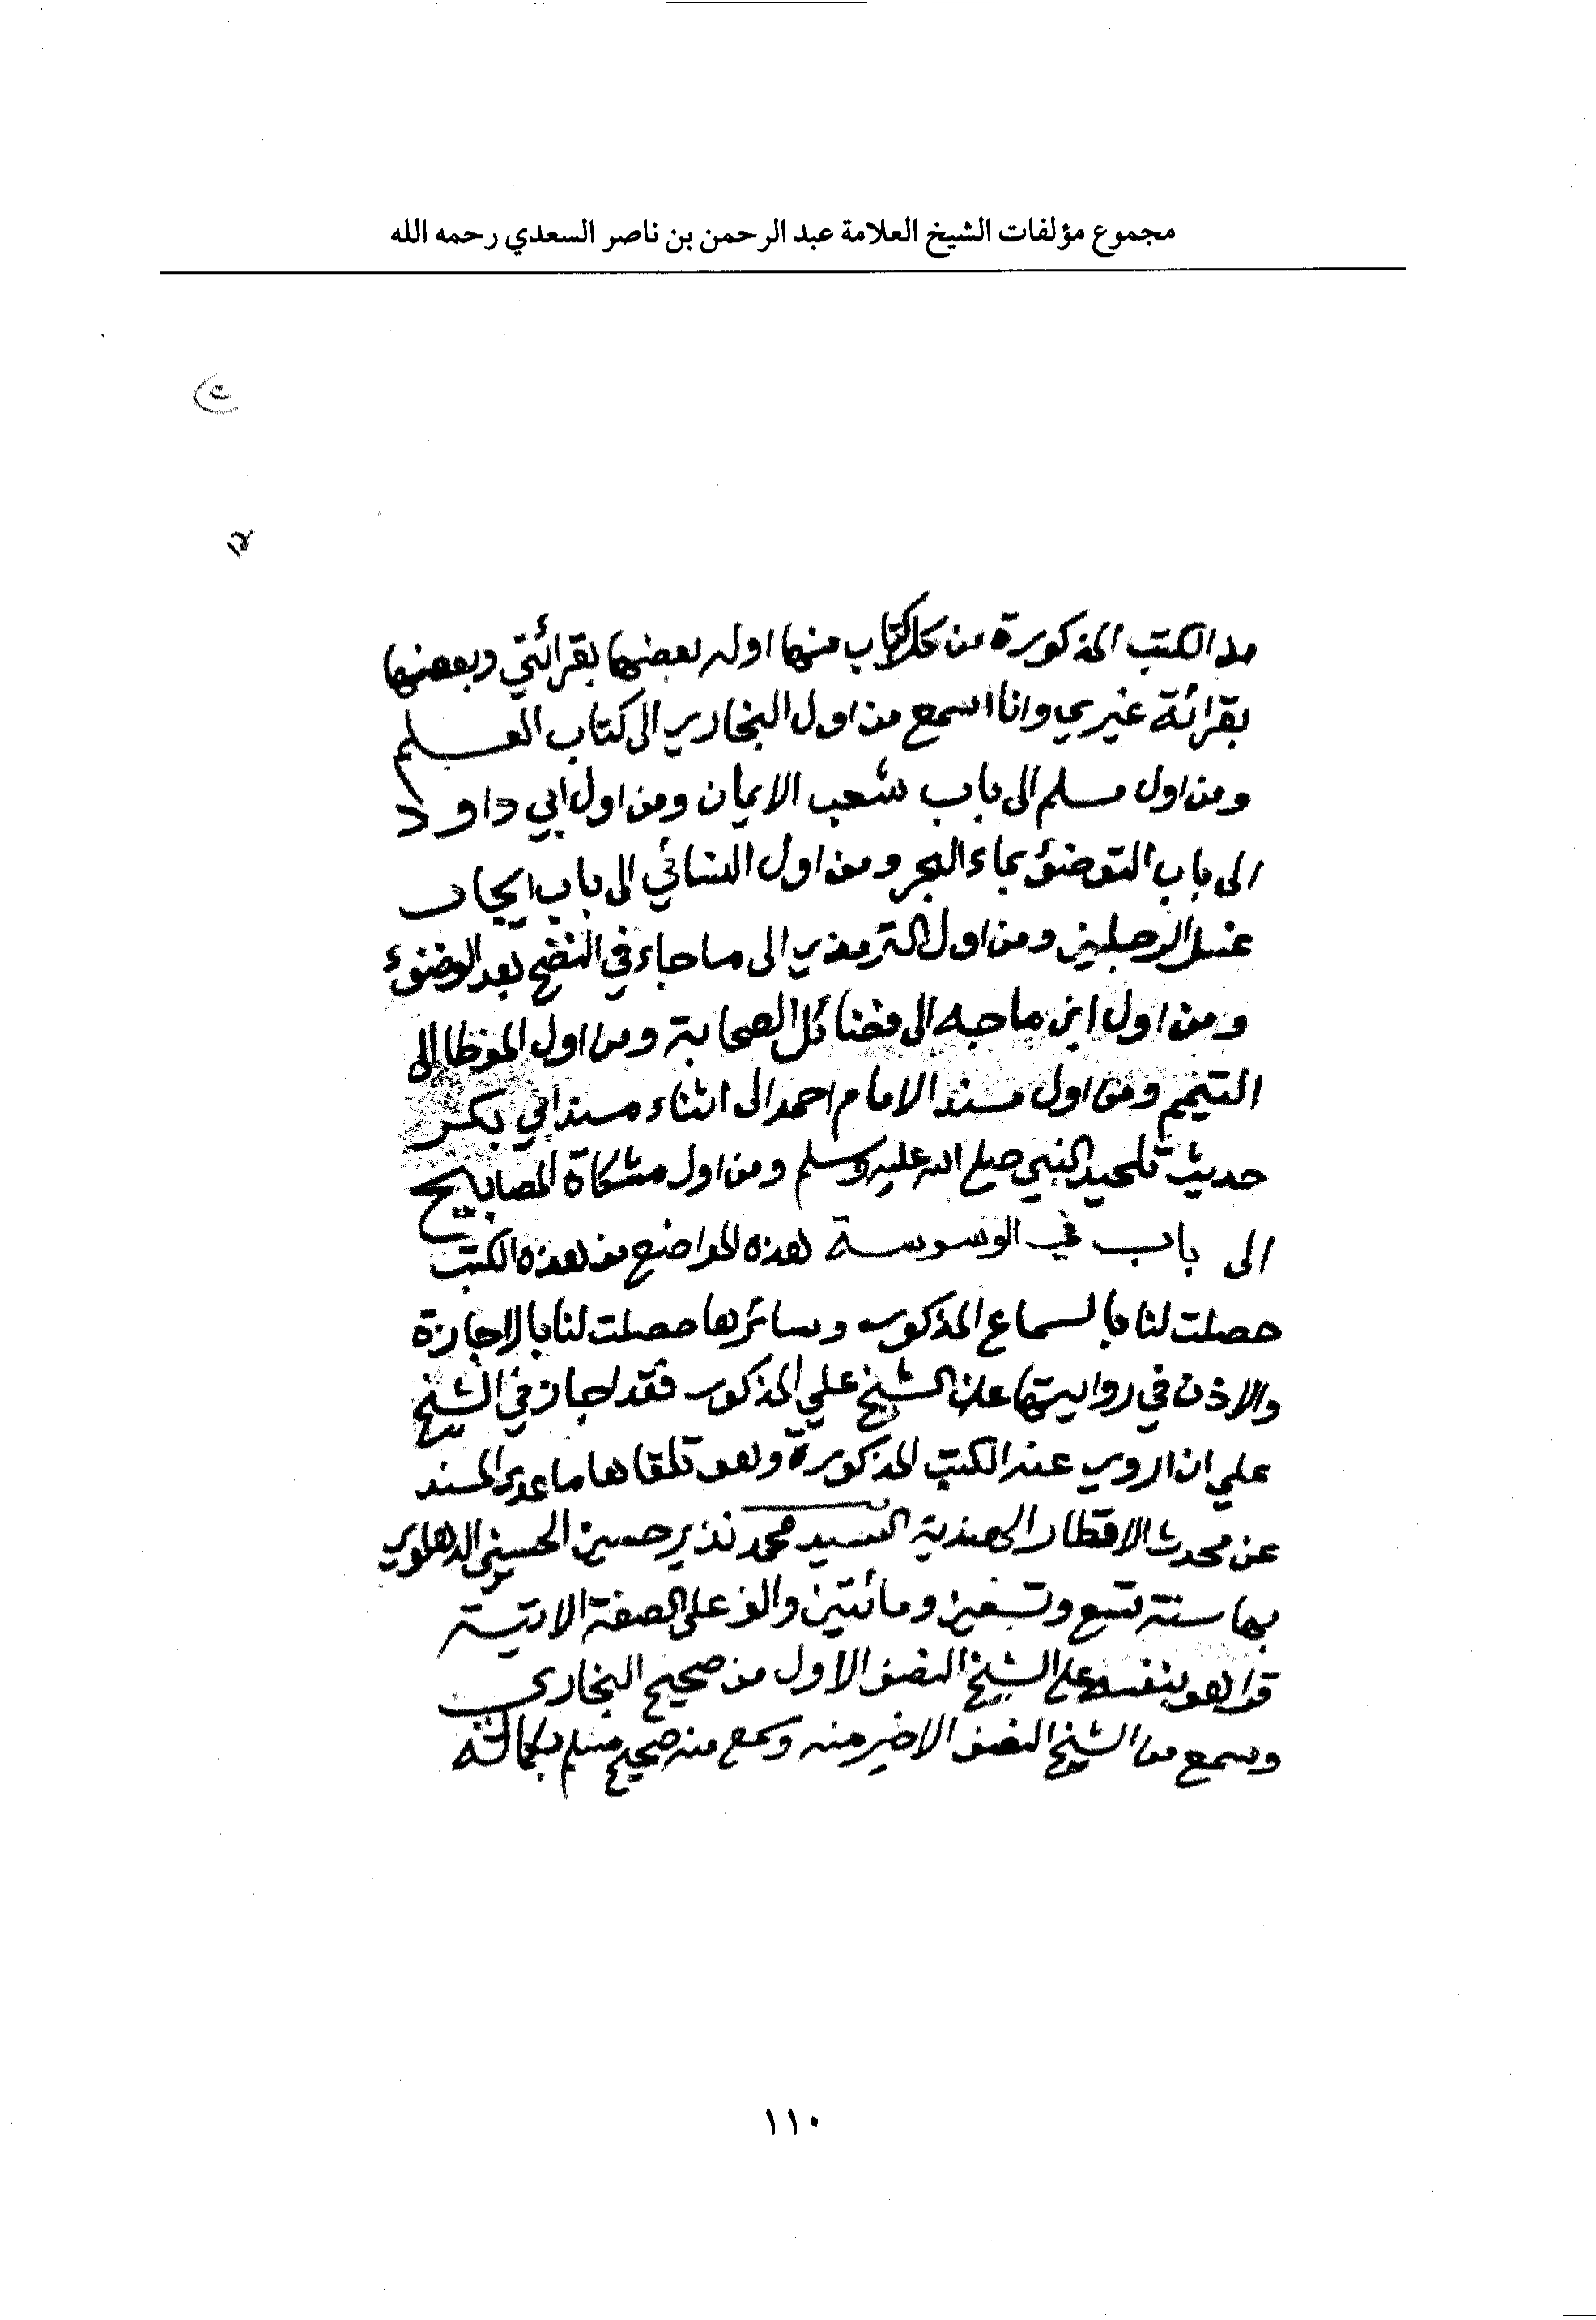 مجموع مؤلفات الشيخ العلامة عبد الرحمن بن ناصر السعدي رحمه الله
من الكتب المذكورة من كل كتاب منها اوله بعضها بقرائتي وبعضها
بقرائة غيري وانا اسمع من اول البخاري الى كتاب العلم
ومن اول مسلم الى باب شعب الايمان ومن اول ابي داود
الى باب التوضئ بماء البحر ومن اول النسائي الى باب ايجاب
غسل الرجلين ومن اول الترمذي الى ما جاء في النضح بعد الوضوء
ومن اول ابن ماجه الى فضائل الصحابة ومن اول الموطا الى
التيمم ومن اول مسند الامام احمد الى اثناء مسند ابي بكر
حديث تلحيد النبي صلى الله عليه وسلم ومن اول مشكاة المصابيح
الى باب في الوسوسة هذه المواضع من هذه الكتب
حصلت لنا بالسماع المذكور وسائرها حصلت لنا بالاجازة
والاذن في روايتها عن الشيخ علي المذكور فقد اجازني الشيخ
علي ان اروي عنه الكتب المذكورة وهو تلقاها ما عدى المسند
عن محدث الاقطار الهندية السيد محمد نذير حسين الحسيني الدهلوي
بها سنة تسع وتسعين ومائتين والف على الصفة الاتية
قرا هو بنفسه على الشيخ النصف الاول من صحيح البخاري
وسمع من الشيخ النصف الاخير منه وسمع منه صحيح مسلم بكماله
١١٠